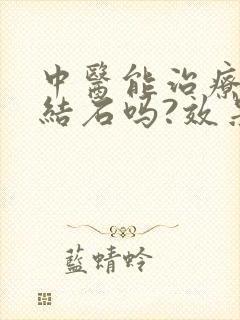 中醫能治療
結石吗?效
藍蜻蛉